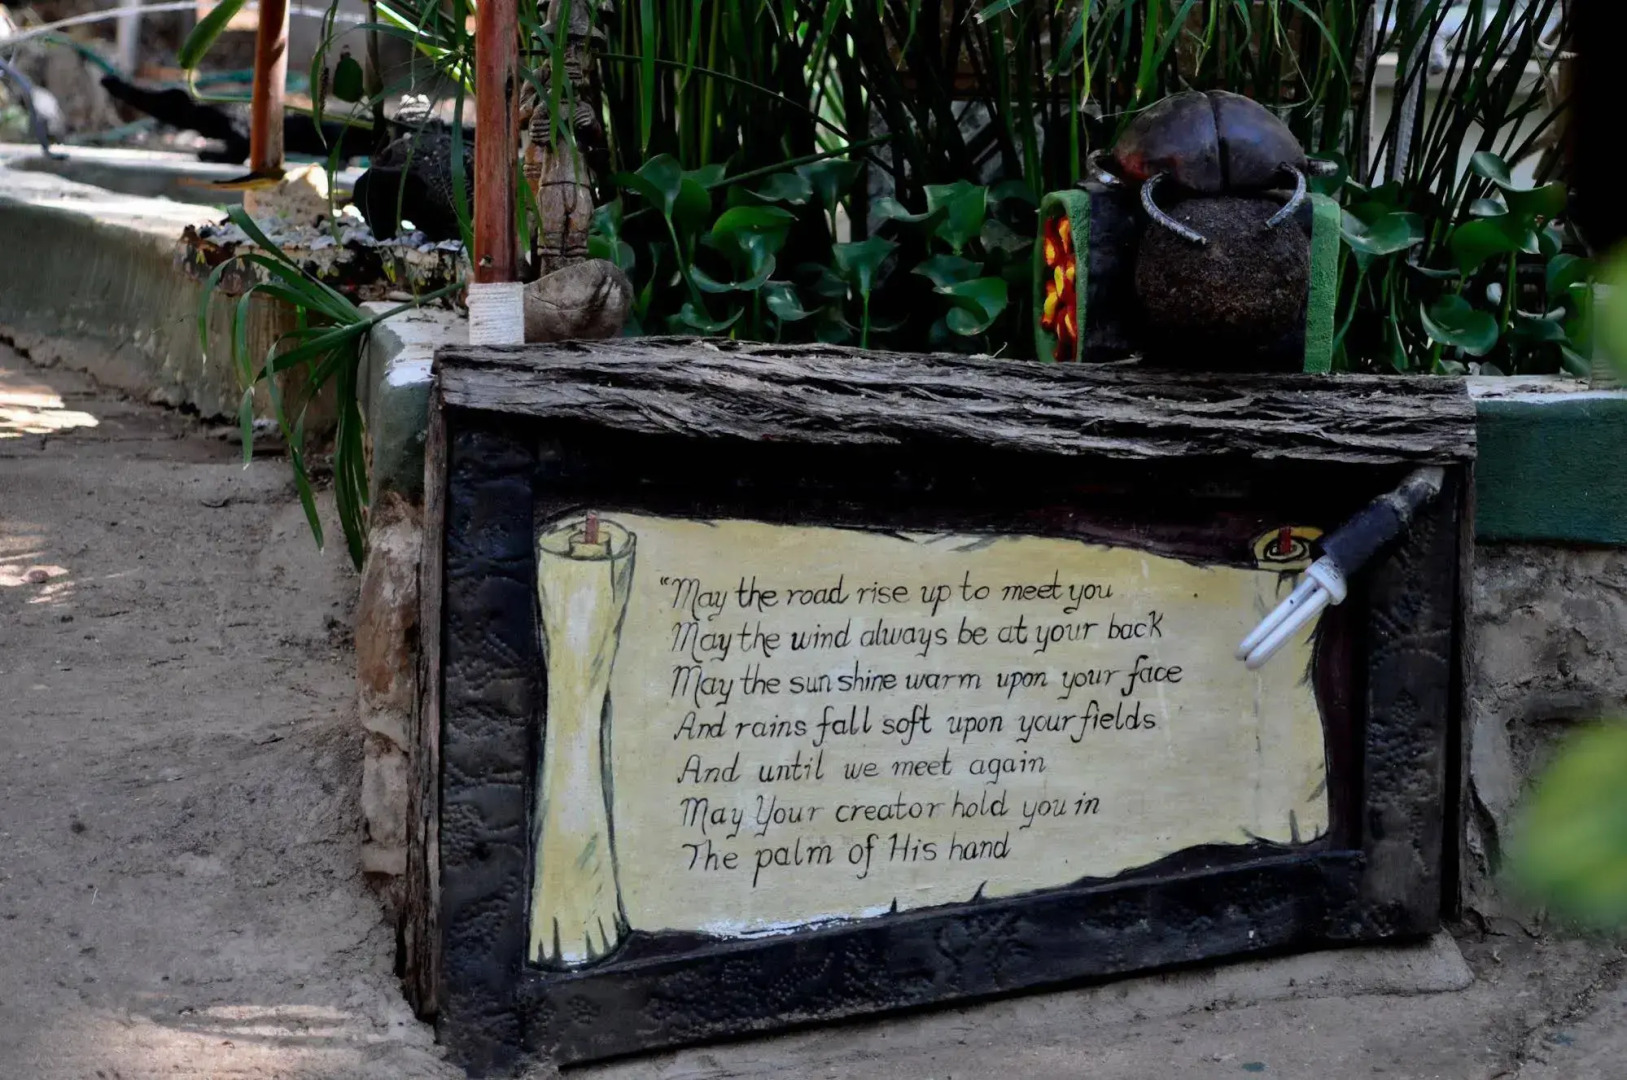 "May the road rise up to meet you
May the wind always be at your back
May the sun shine warm upon your face
And rains fall soft upon your fields
And until we meet again
May Your creator hold you in
The palm of His hand